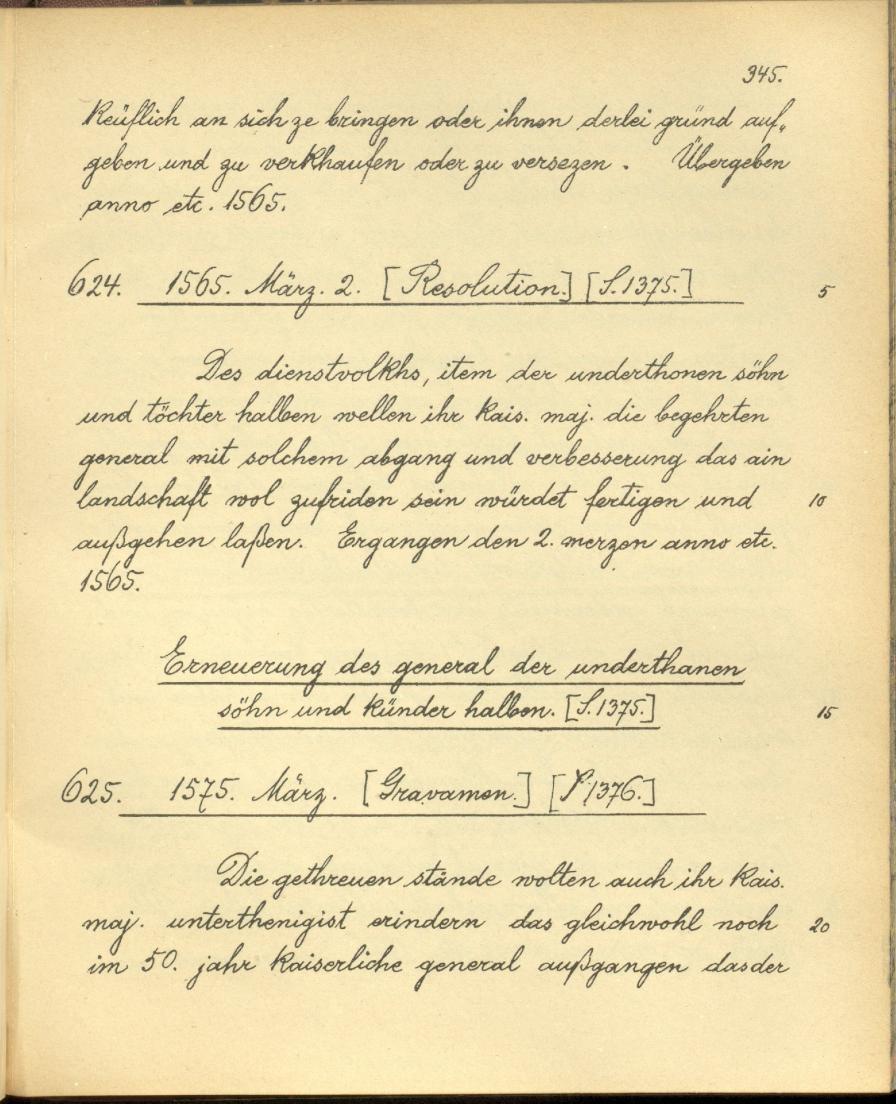 345.
keüflich an sich ze bringen oder ihnen derlei gründ auf„
geben und zu verkhaufen oder zu versezen. Übergeben
anno etc. 1565.
624. 1565. März. 2. [Resolution.] [S. 1375.] 5
Des dienstvolkhs, item der underthonen söhn
und töchter halben wellen ihr kais. maj. die begehrten
general mit solchem abgang und verbesserung das ain
landschaft wol zufriden sein würdet fertigen und 10
außgehen laßen. Ergangen den 2. merzen anno etc.
1565.
Erneuerung des general der underthanen
söhn und künder halben. [S. 1375.] 15
625. 1575. März. [Gravamen.] [S. 1376.]
Die gethreuen stände wolten auch ihr kais.
maj. unterthenigist erindern das gleichwohl noch 20
im 50. jahr kaiserliche general außgangen das der